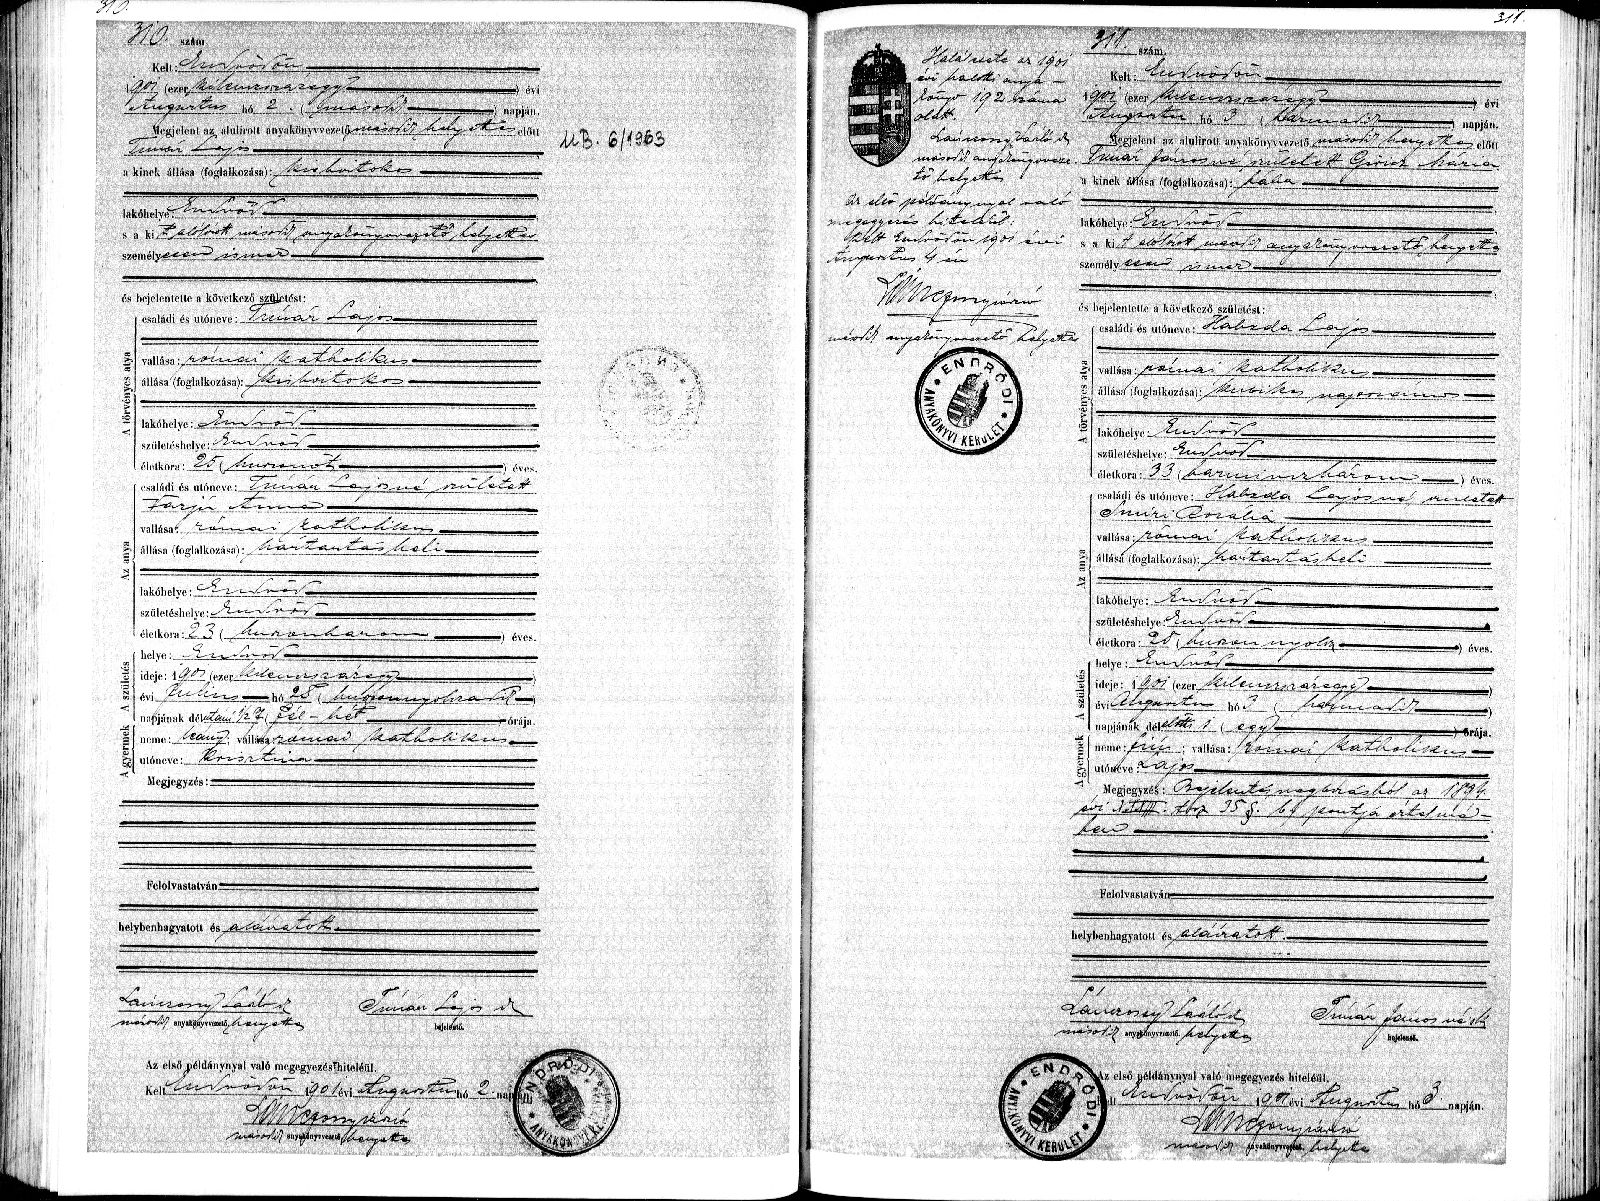 310.
310. szám
Kelt: Endrődön
1901 (ezer kilenczszázegy) évi
Augusztus hó 2. (második) napján.
Megjelent az alulirott anyakönyvvezető második helyettes előtt
Timár Lajos
a kinek állása (foglalkozása): kisbirtokos
lakóhelye: Endrőd
s a kit alólirott második anyakönyvvezető helyettes
személyesen ismer
és bejelentette a következő születést:
A törvényes atya
családi és utóneve: Timár Lajos
vallása: római katholikus
állása (foglalkozása): kisbirtokos
lakóhelye: Endrőd
születéshelye: Endrőd
életkora: 25 (huszonöt) éves.
Az anya
családi és utóneve: Timár Lajosné, született
Farju Anna
vallása: római katholikus
állása (foglalkozása): háztartásbeli
lakóhelye: Endrőd
születéshelye: Endrőd
életkora: 23 (huszonhárom) éves.
A születés
helye: Endrőd
ideje: 1901 (ezer kilenczszázegy)
évi Julius hó 28 (huszonnyolczadik)
napjának délutáni 1/2 7 (fél-hét) órája.
A gyermek
neme: leány; vallása: római katholikus
utóneve: Krisztina
Megjegyzés:
Felolvastatván
helybenhagyatott és aláiratott.
Lánczony László
Timár Lajos
második anyakönyvvezető helyettes
bejelentő.
Az első példánynyal való megegyezés hiteléül.
Kelt Endrődön 1901 évi Augusztus hó 2 napján
második anyakönyvvezető helyettes
ENDRŐDI
MB. 6/1963
311.
Halálesete az 1901
évi halotti anya-
könyv 192 száma
alatt.
Lánczony László
második anyakönyvveze-
tő helyettes
Az első példánynyal való
megegyezés hiteléül.
Kelt Endrődön 1901 évi
Augusztus 4 én
második anyakönyvvezető helyettes
ENDRŐDI
ANYAKÖNYVI KERÜLET
311. szám.
Kelt: Endrődön
1901 (ezer kilenczszázegy) évi
Augusztus hó 3 (harmadik) napján.
Megjelent az alulirott anyakönyvvezető második helyettes előtt
Timár Jánosné született Mária
a kinek állása (foglalkozása): bába
lakóhelye: Endrőd
s a kit alólirott második anyakönyvvezető helyettes
személyesen ismer
és bejelentette a következő születést:
A törvényes atya
családi és utóneve: Habzda Lajos
vallása: római katholikus
állása (foglalkozása): kubikos napszámos
lakóhelye: Endrőd
születéshelye: Endrőd
életkora: 33 (harminczhárom) éves.
Az anya
családi és utóneve: Habzda Lajosné, született
Rozália
vallása: római katholikus
állása (foglalkozása): háztartásbeli
lakóhelye: Endrőd
születéshelye: Endrőd
életkora: 28 (huszonnyolcz) éves.
A születés
helye: Endrőd
ideje: 1901 (ezer kilenczszázegy)
évi Augusztus hó 3 (harmadik)
napjának délelőtti 1 (egy) órája.
A gyermek
neme: fiú; vallása: római katholikus
utóneve: Lajos
Megjegyzés: Bejelentés meghívásból az 1894.
évi XXXIII. tcz 35 §. b) pontja értelmé-
ben
Felolvastatván
helybenhagyatott és aláiratott.
Lánczony László
Timár Jánosné
második anyakönyvvezető helyettes
bejelentő.
Az első példánynyal való megegyezés hiteléül.
Kelt Endrődön 1901 évi Augusztus hó 3 napján.
második anyakönyvvezető helyettes
ENDRŐDI
ANYAKÖNYVI KERÜLET